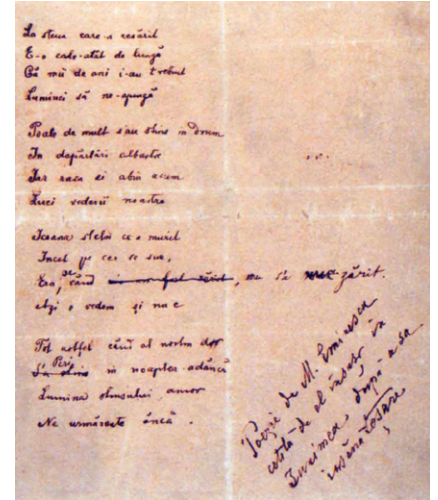 La steua care a resărit
E-o cale-atât de lungă
Că mii de ani i-au trebuit
Luminei să ne-ajungă
Poate de mult s'au stins in drum
In depărtări albastre
Iar raza ei abia acum
Luci vederii noastre
Icoana stelei ce a murit
Incet pe cer se sue,
Era, pe când, nu s'a zărit.
Azi o vedem și nu e
Tot astfel când al nostru dor
Peri in noaptea-adâncă
Lumina stinsului amor
Ne urmărește încă.
Poezie de M. Eminescu
de el însuși, în
după a sa
însănătoșare